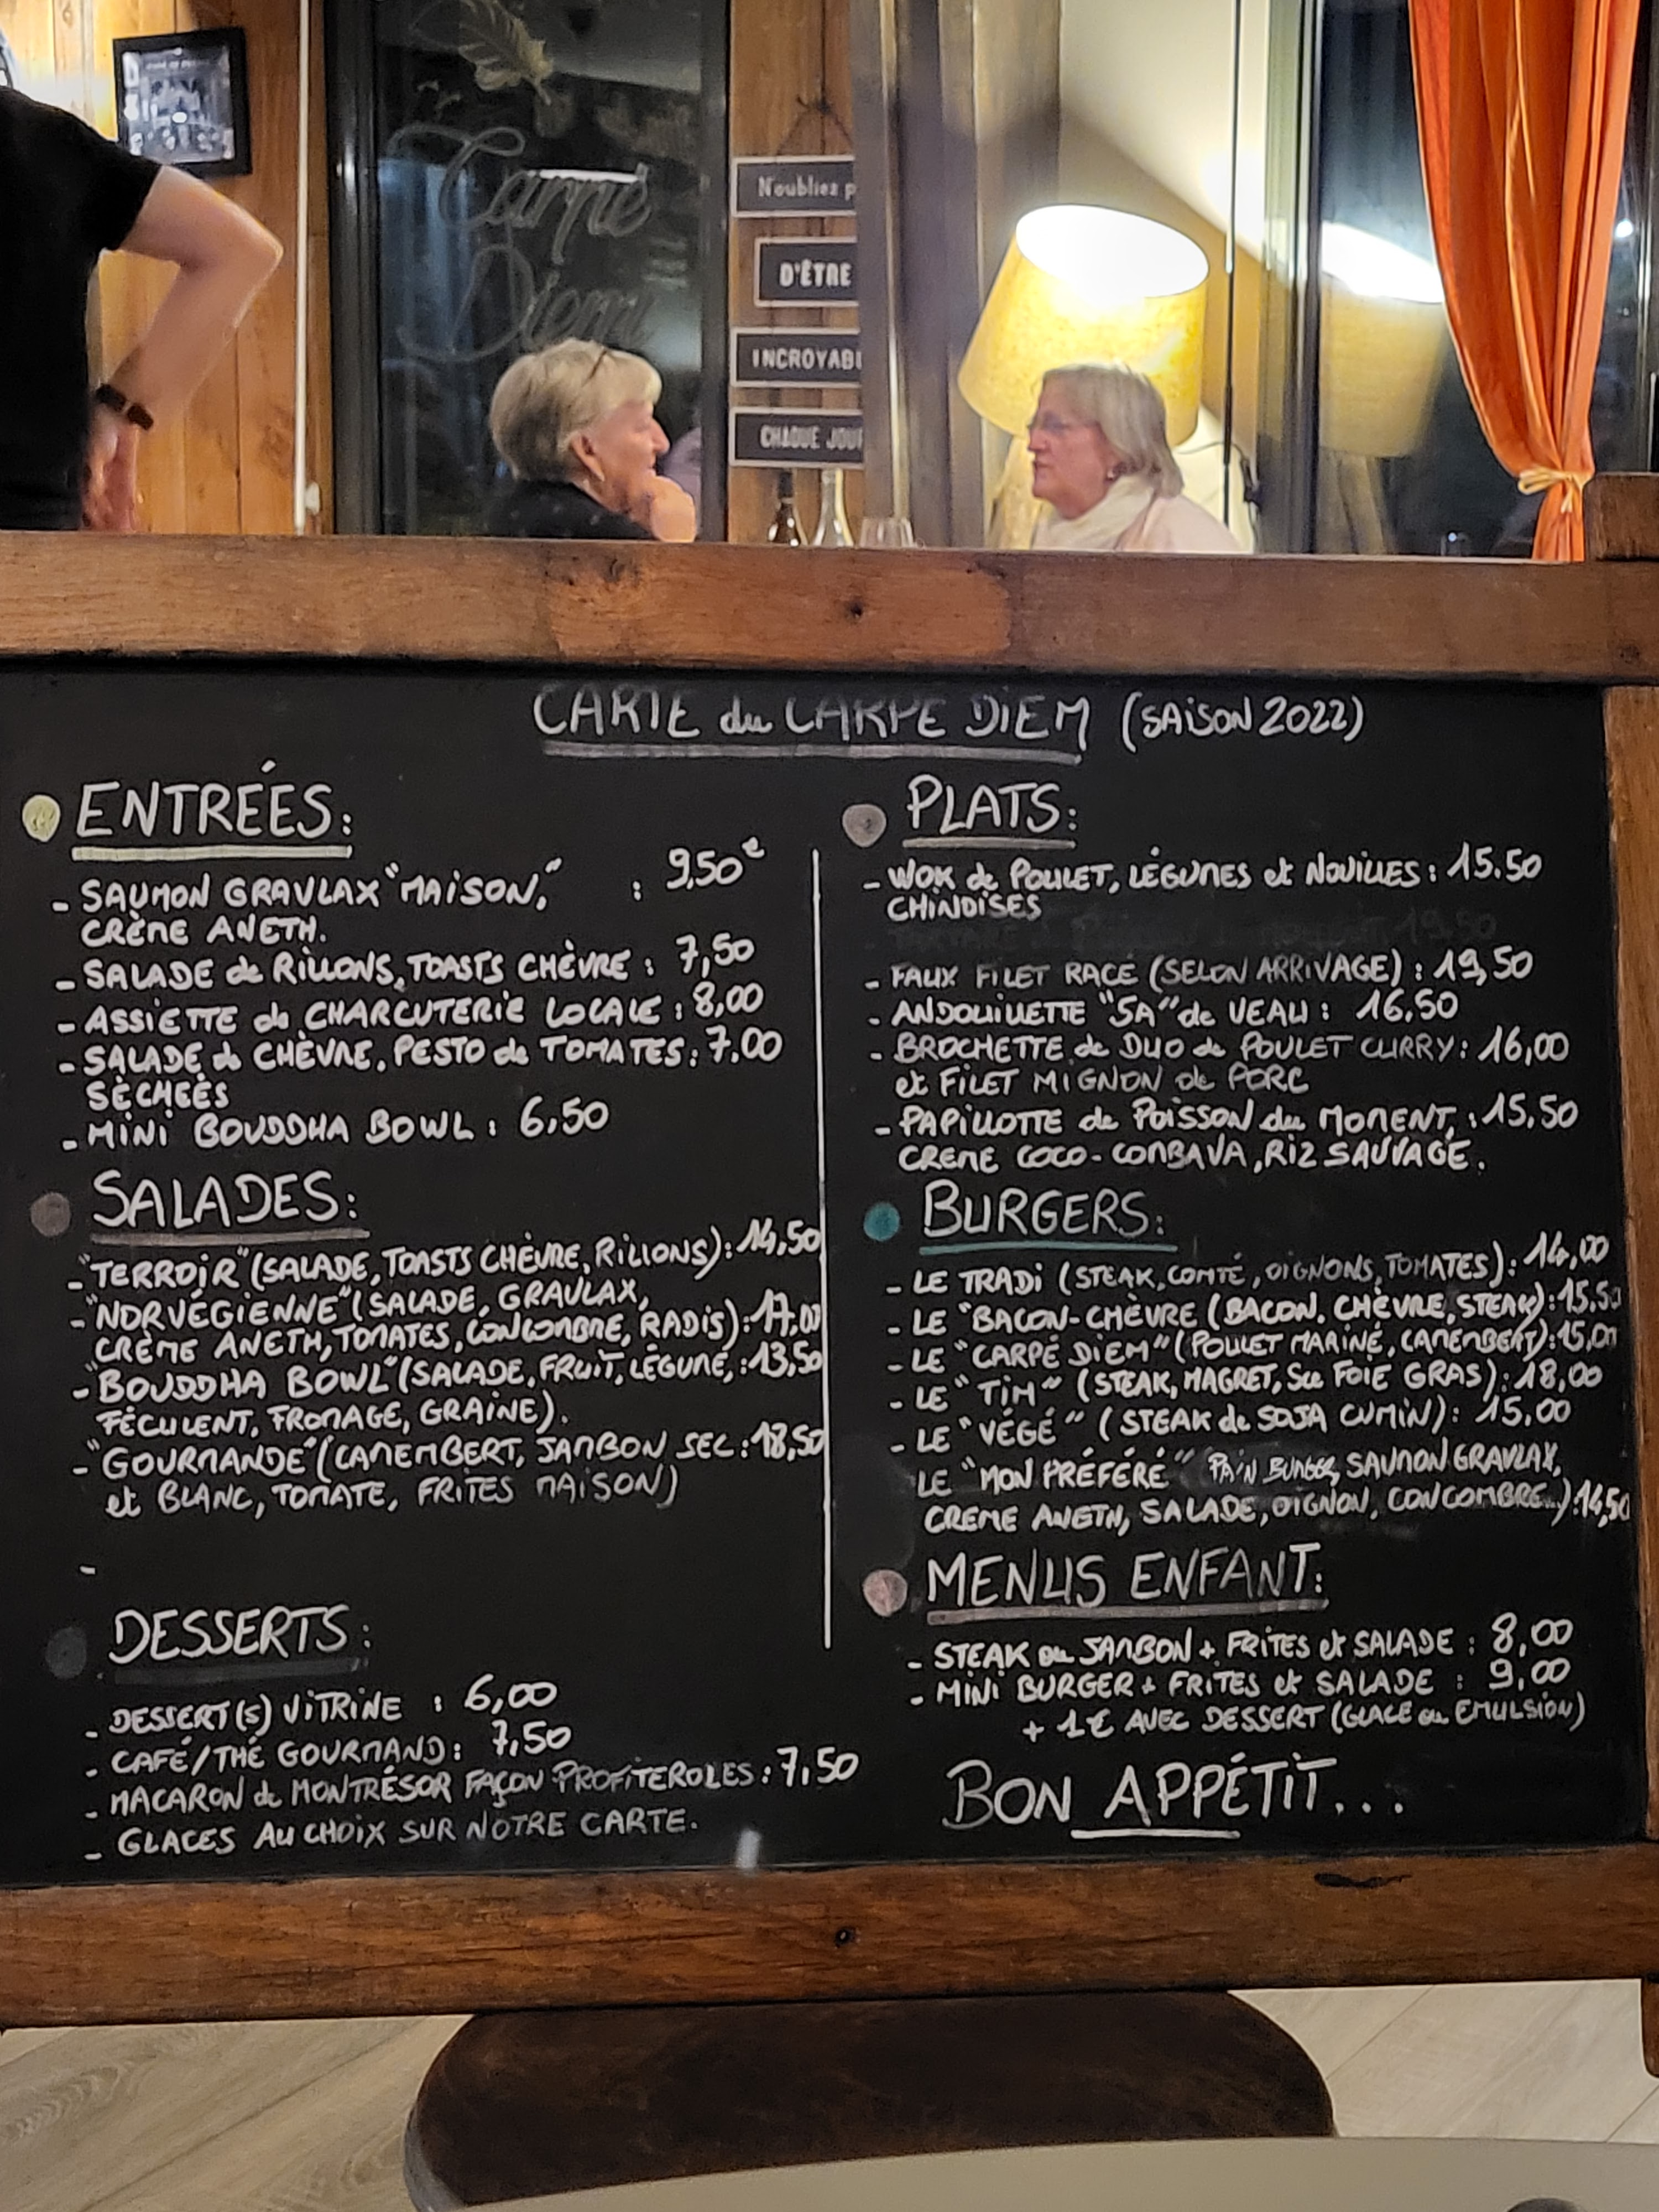 Carpe
Diem
N'oubliez p
D'ÊTRE
INCROYABL
CHAQUE JOUR
CARTE du CARPE DIEM (SAISON 2022)
ENTRÉES:
- SAUMON GRAVLAX "MAISON," : 9,50€
CRÈME ANETH.
- SALADE de RILLONS, TOASTS CHÈVRE : 7,50
- ASSIETTE de CHARCUTERIE LOCALE : 8,00
- SALADE de CHÈVRE, PESTO de TOMATES: 7.00
SÈCHÉES
- MINI BOUDDHA BOWL : 6,50
SALADES:
- "TERROIR" (SALADE, TOASTS CHÈVRE, RILLONS): 14,50
- "NORVÉGIENNE" (SALADE, GRAVLAX,
CRÈME ANETH, TOMATES, CONCOMBRE, RADIS): 17.00
- "BOUDDHA BOWL" (SALADE, FRUIT, LÉGUME, : 13,50
FÉCULENT, FROMAGE, GRAINE).
- "GOURMANDE" (CAMEMBERT, JAMBON SEC : 18,50
et BLANC, TOMATE, FRITES MAISON)
-
DESSERTS:
- DESSERT(S) VITRINE : 6,00
- CAFÉ/THÉ GOURMAND : 7,50
- MACARON de MONTRÉSOR FAÇON PROFITEROLES : 7,50
- GLACES AU CHOIX SUR NOTRE CARTE.
PLATS:
- WOK de POULET, LÉGUMES et NOUILLES : 15.50
CHINOISES
19,50
- FAUX FILET RACE (SELON ARRIVAGE) : 19,50
- ANDOUILLETTE "5A" de VEAU : 16,50
- BROCHETTE de DUO de POULET CURRY : 16,00
et FILET MIGNON de PORC
- PAPILLOTTE de POISSON du MOMENT, : 15,50
CREME COCO-COMBAVA, RIZ SAUVAGE.
BURGERS:
- LE TRADI (STEAK, COMTÉ, OIGNONS, TOMATES) : 14,00
- LE "BACON-CHÈVRE (BACON, CHÈVRE, STEAK) : 15,50
- LE "CARPÉ DIEM" (POULET MARINÉ, CAMEMBERT) : 15,00
- LE "TIM" (STEAK, MAGRET, Sce FOIE GRAS) : 18,00
- LE "VÉGÉ" (STEAK de SOJA CUMIN) : 15,00
LE "MON PRÉFÉRÉ" PAIN BURGER, SAUMON GRAVLAX,
CREME ANETH, SALADE, OIGNON, CONCOMBRE...) : 14,50
MENUS ENFANT:
- STEAK ou JAMBON + FRITES et SALADE : 8,00
- MINI BURGER + FRITES et SALADE : 9,00
+ 1€ AVEC DESSERT (GLACE ou EMULSION)
BON APPÉTIT...